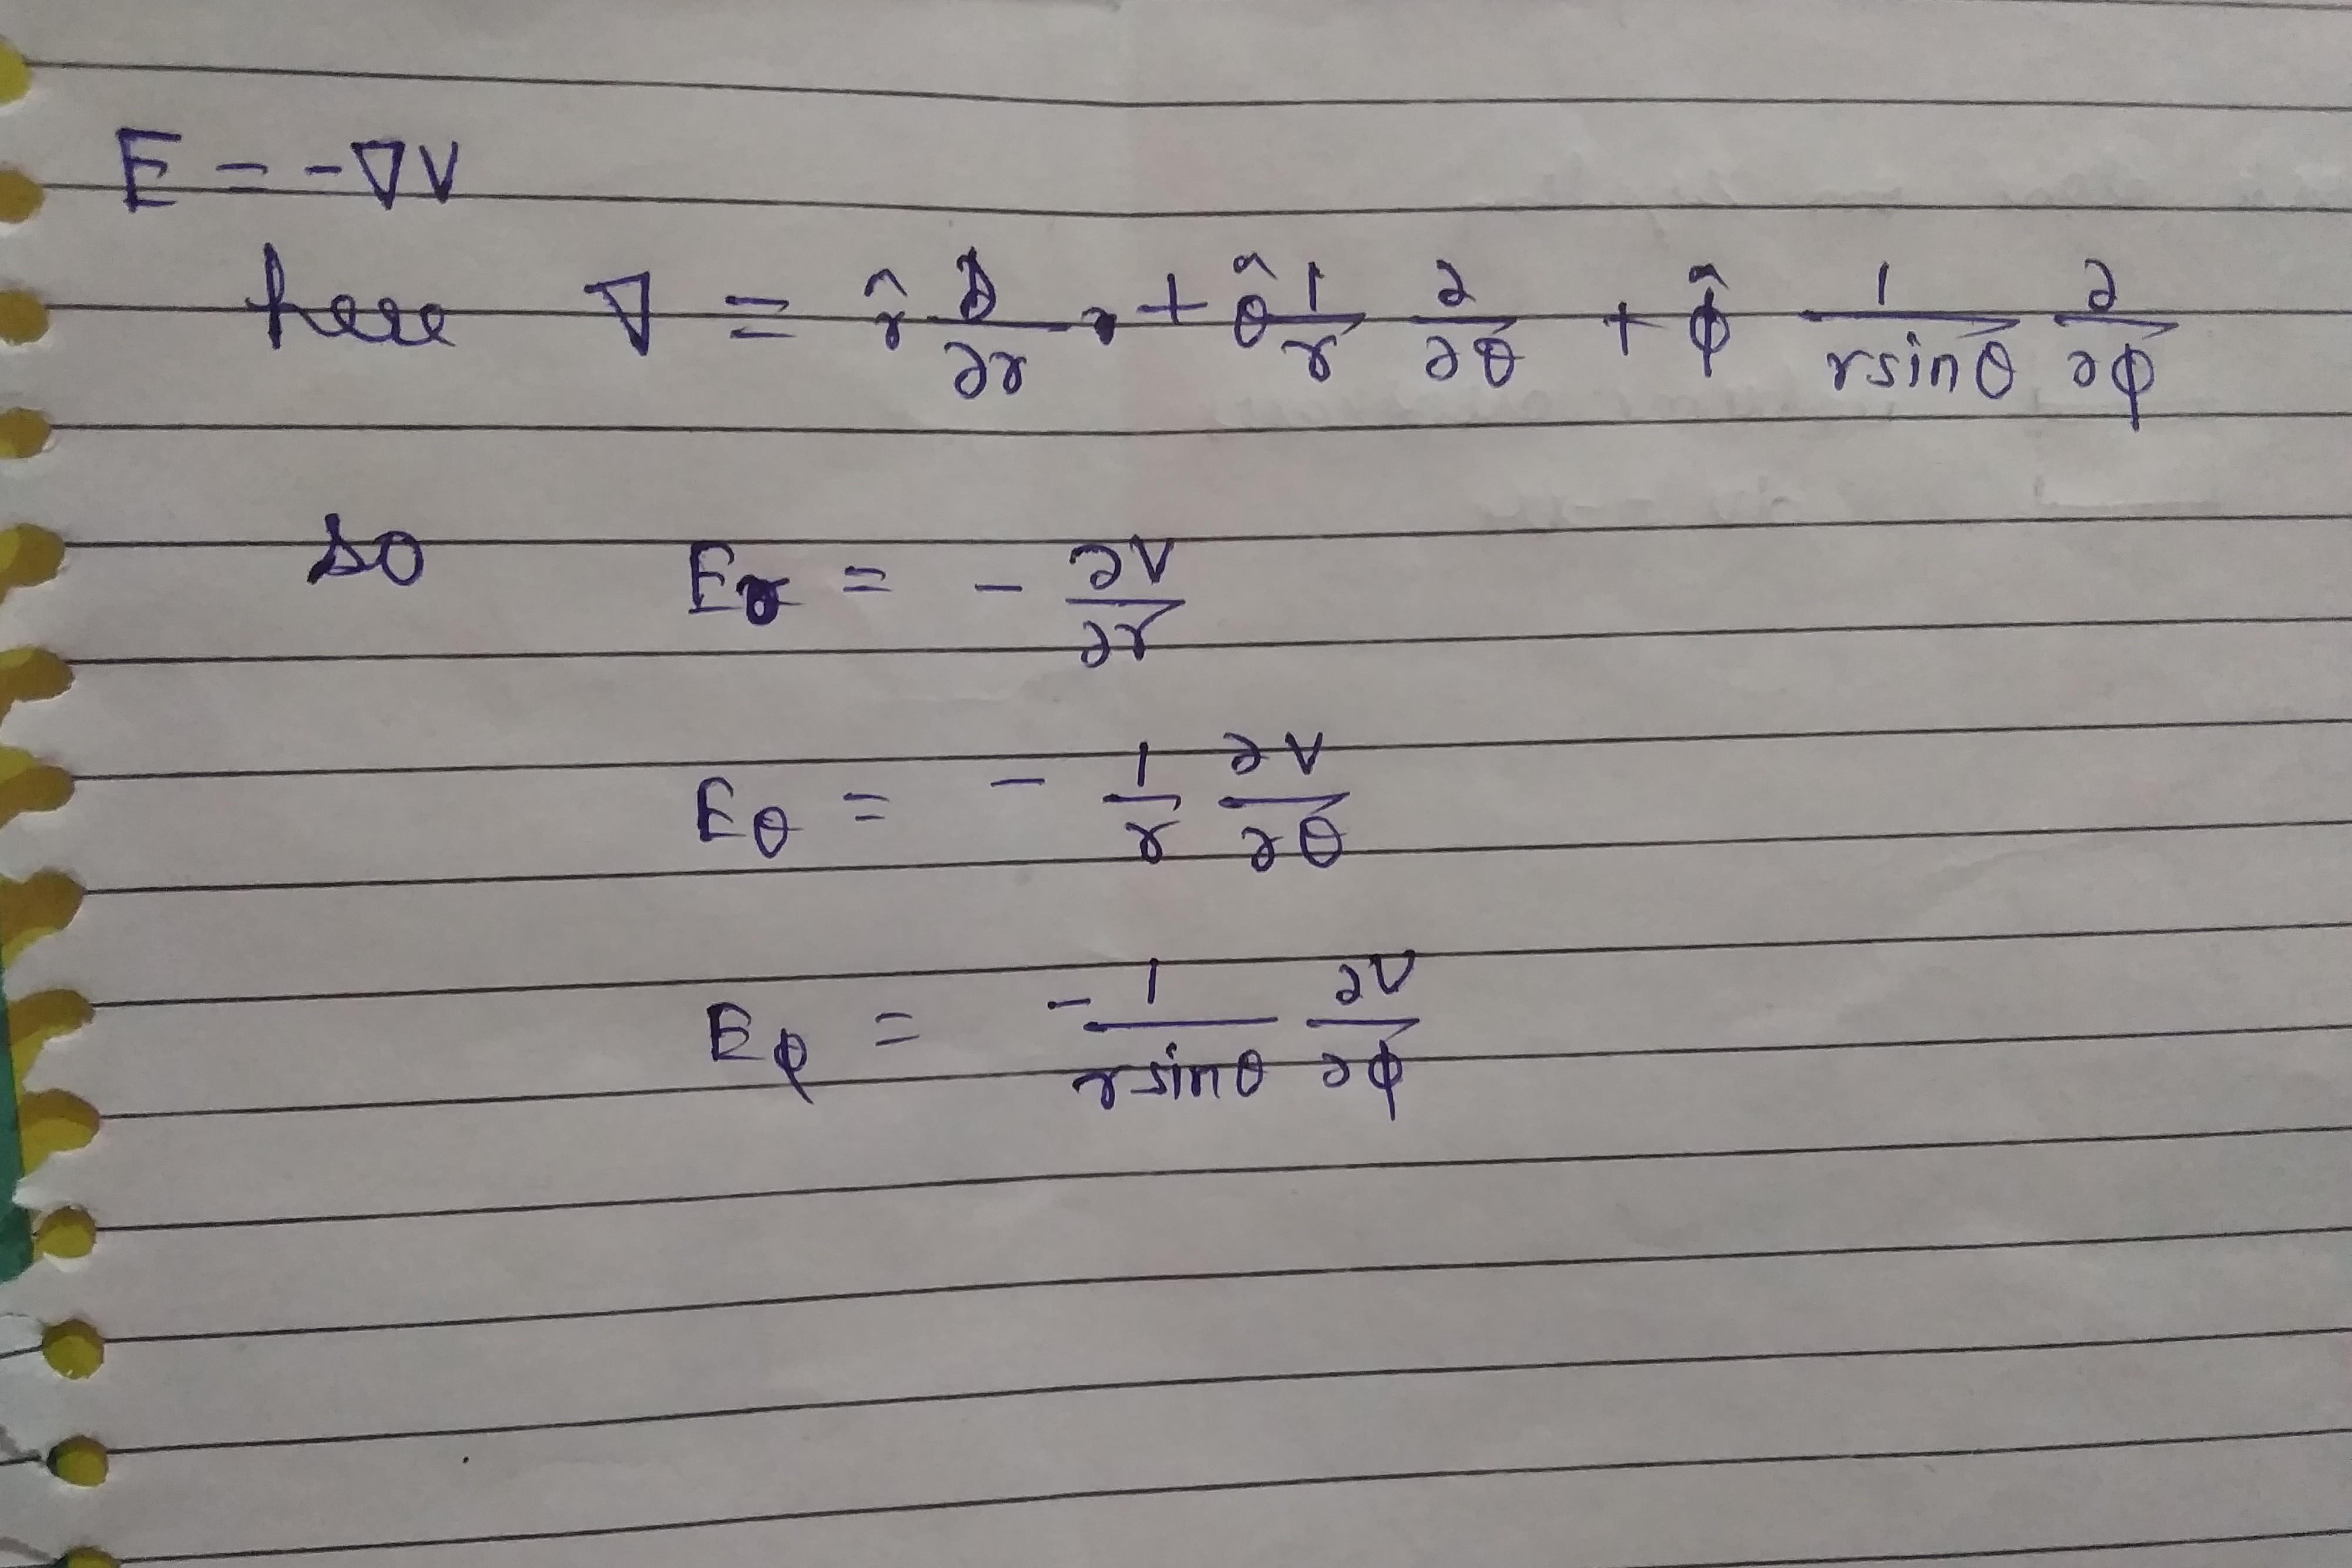 E = -∇V
here ∇ = r̂ ∂/∂r + θ̂ 1/r ∂/∂θ + φ̂ 1/(r sinθ) ∂/∂φ
so E_r = - ∂V/∂r
E_θ = - 1/r ∂V/∂θ
E_φ = - 1/(r sinθ) ∂V/∂φ